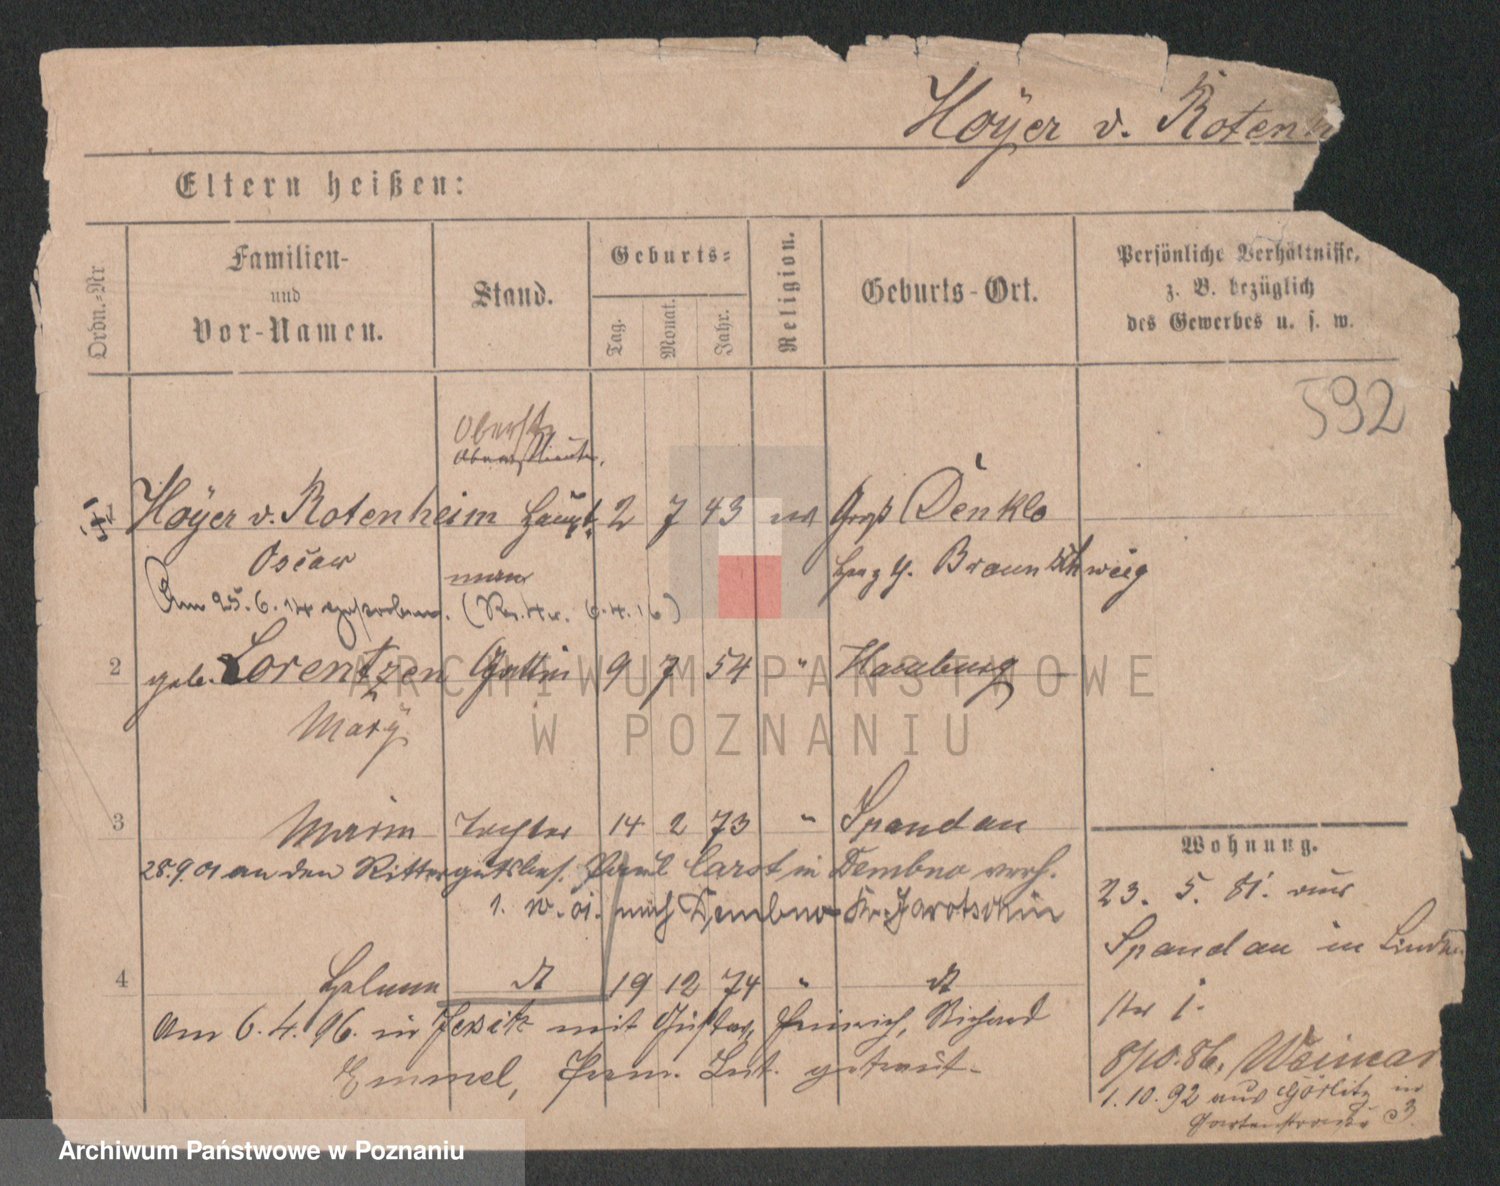 Höÿer v. Roten
Eltern heißen:
Ordn.-Nr
Familien-
und
Vor-Namen.
Stand.
Geburts-
Tag.
Monat.
Jahr.
Religion.
Geburts-Ort.
Persönliche Verhältnisse,
z. B. bezüglich
des Gewerbes u. s. w.
592
Oberst
Oberstlieutn.
Höÿer v. Rotenheim Haupt 2 7 43 ev Groß Denkte
Oscar mann Herz. Braunschweig
Am 25.6.14 gestorben. (6.4.16)
2 geb. Lorentzen Gattin 9 7 54 " Hamburg
Marÿ
3 Tochter 14 2 73 " Spandau
28.9.01 an den Rittergutsbes. Paul Carst in Dembno verh.
1. 10. 01. nach Dembno Kr. Jarotschin
4 Helene dt 19 12 74 " dt
Am 6.4.96. in Jersitz mit Gustav, Heinrich, Richard
Emmel, Prem. Lnt. getraut.
Wohnung.
23. 5. 81. aus
Spandau in
8/10.86. Weimar
1.10.92 aus Görlitz in
Gartenstraße 3.
ARCHIWUM PAŃSTWOWE
W POZNANIU
Archiwum Państwowe w Poznaniu